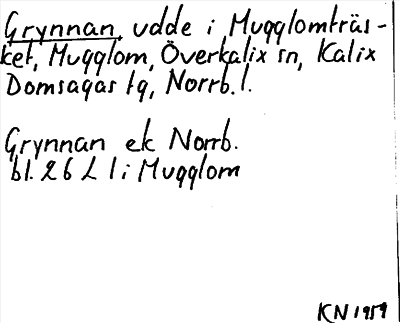 Grynnan, udde i Mugglomträs-
ket, Mugglom, Överkalix sn, Kalix
Domsagas tg, Norrb. l.
Grynnan ek Norrb.
bl. 26 L 1 i Mugglom
KN 1959